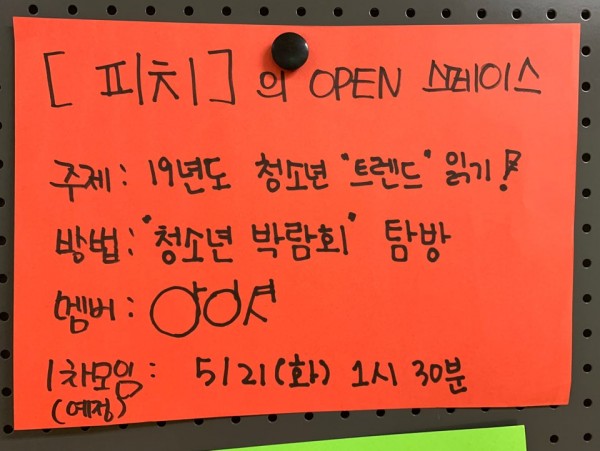 [피치]의 OPEN 스페이스
주제: 19년도 청소년 "트렌드" 읽기!
방법: "청소년 박람회" 탐방
멤버:
1차모임: 5/21(화) 1시 30분
(예정)